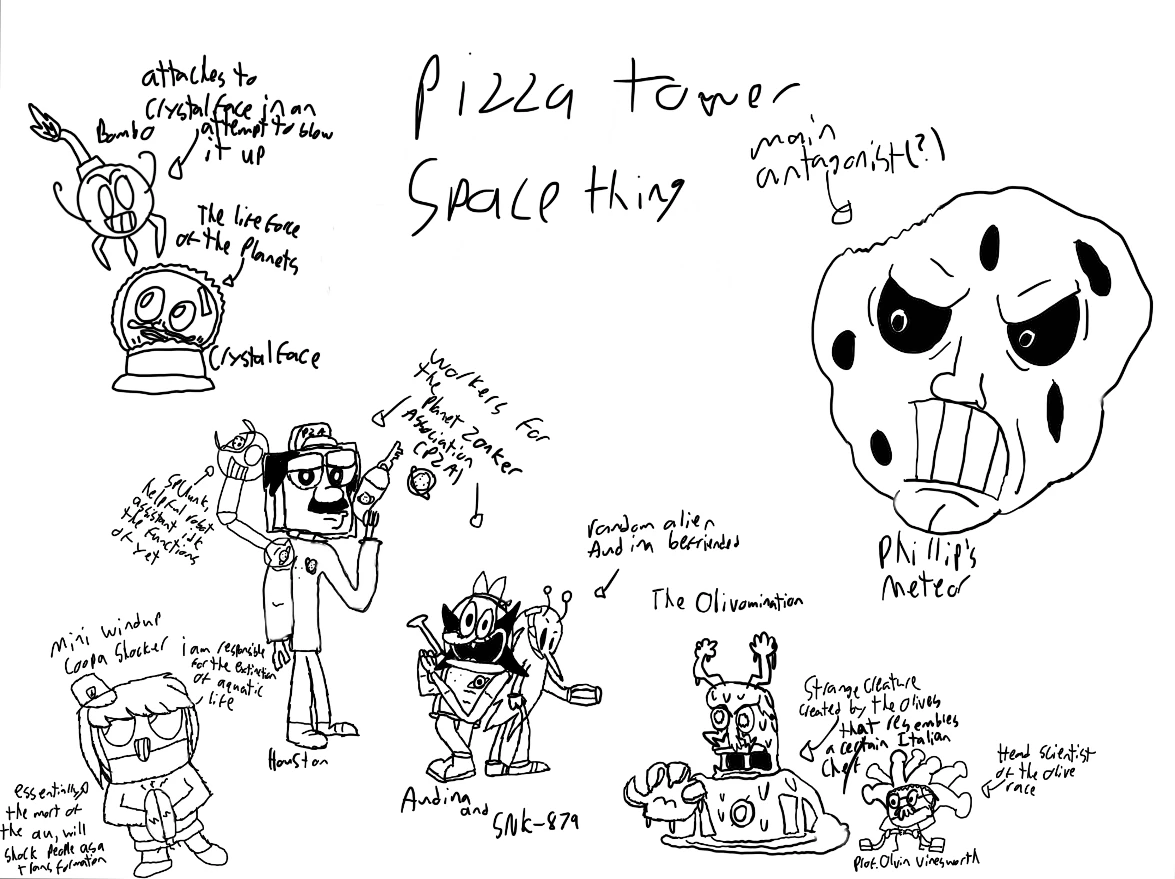 Pizza tower
Space thing
attaches to
Crystalface in an
attempt to blow
it up
Bombo
The life force
of the Planets
Crystalface
main
antagonist(?)
Phillip's
Meteor
workers for
the
Planet Zonker
Association
(PZA)
PZA
Splunk,
helpful robot
assistant idk
the functions
of yet
Houston
random alien
Andina befriended
Andina
and
SNK-879
The Olivomination
Strange Creature
created by the Olives
that resembles
a certain Italian
Chef
Head Scientist
of the Olive
race
Prof. Olvin Vinesworth
Mini Windup
Coopa Shocker
i am responsible
for the extinction
of aquatic
life
essentially
the mort of
the au, will
shock people as a
transformation